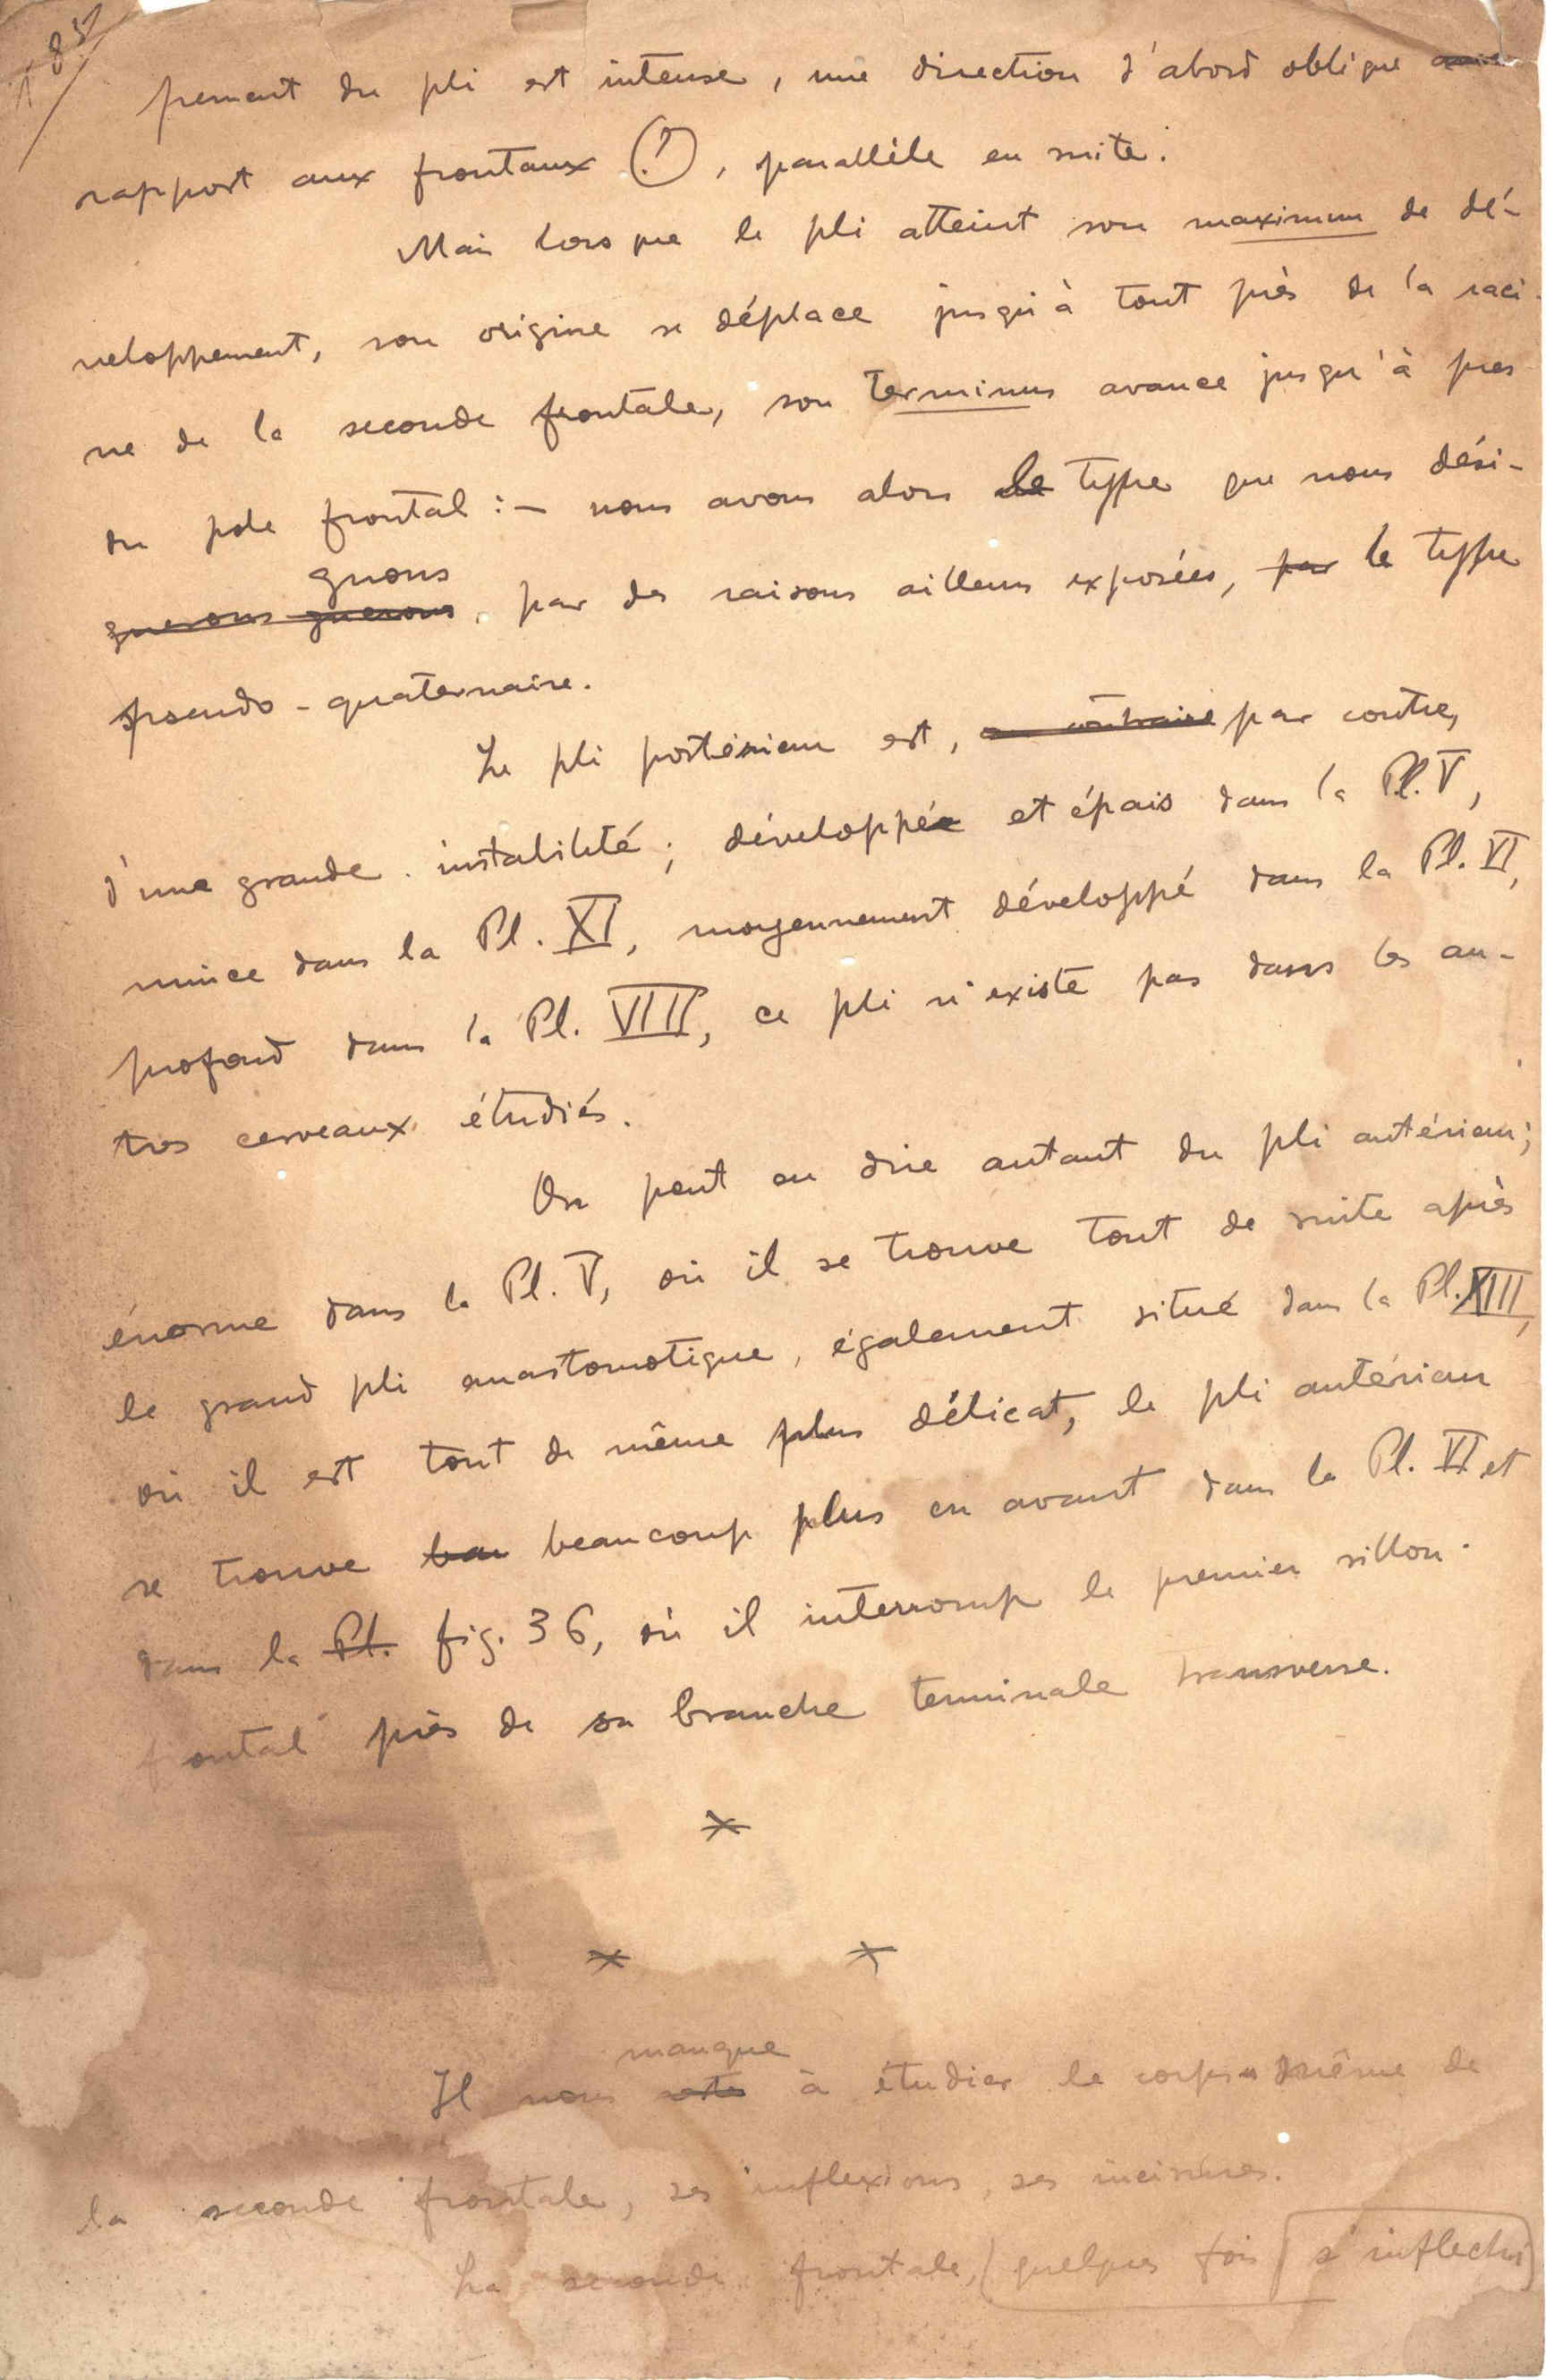 185
pement du pli est intense, une direction d'abord oblique
rapport aux frontaux (?), parallèle en suite.
Mais lorsque le pli atteint son maximum de dé-
veloppement, son origine se déplace jusqu'à tout près de la raci-
ne de la seconde frontale, son terminus avance jusqu'à pres
du pole frontal :— nous avons alors le type que nous dési-
gnons
guerons guerons, par des raisons ailleurs exposées, par le type
pseudo-quaternaire.
Le pli postérieur est, au contraire par contre,
d'une grande instabilité ; développée et épais dans la Pl. V,
mince dans la Pl. XI, moyennement développé dans la Pl. VI,
profond dans la Pl. VIII, ce pli n'existe pas dans les au-
tres cerveaux étudiés.
On peut en dire autant du pli antérieur;
énorme dans la Pl. V, où il se trouve tout de suite après
le grand pli anastomotique, également situé dans la Pl. XIII,
où il est tout de même plus délicat, le pli antérieur
se trouve bau beaucoup plus en avant dans la Pl. VI et
dans la Pl. fig. 36, où il interromp le premier sillon
frontal près de sa branche terminale transverse.
*
* *
manque
Il nous reste à étudier le corps même de
la seconde frontale, ses inflexions, ses incisures.
La seconde frontale, (quelques fois s'inflechi)